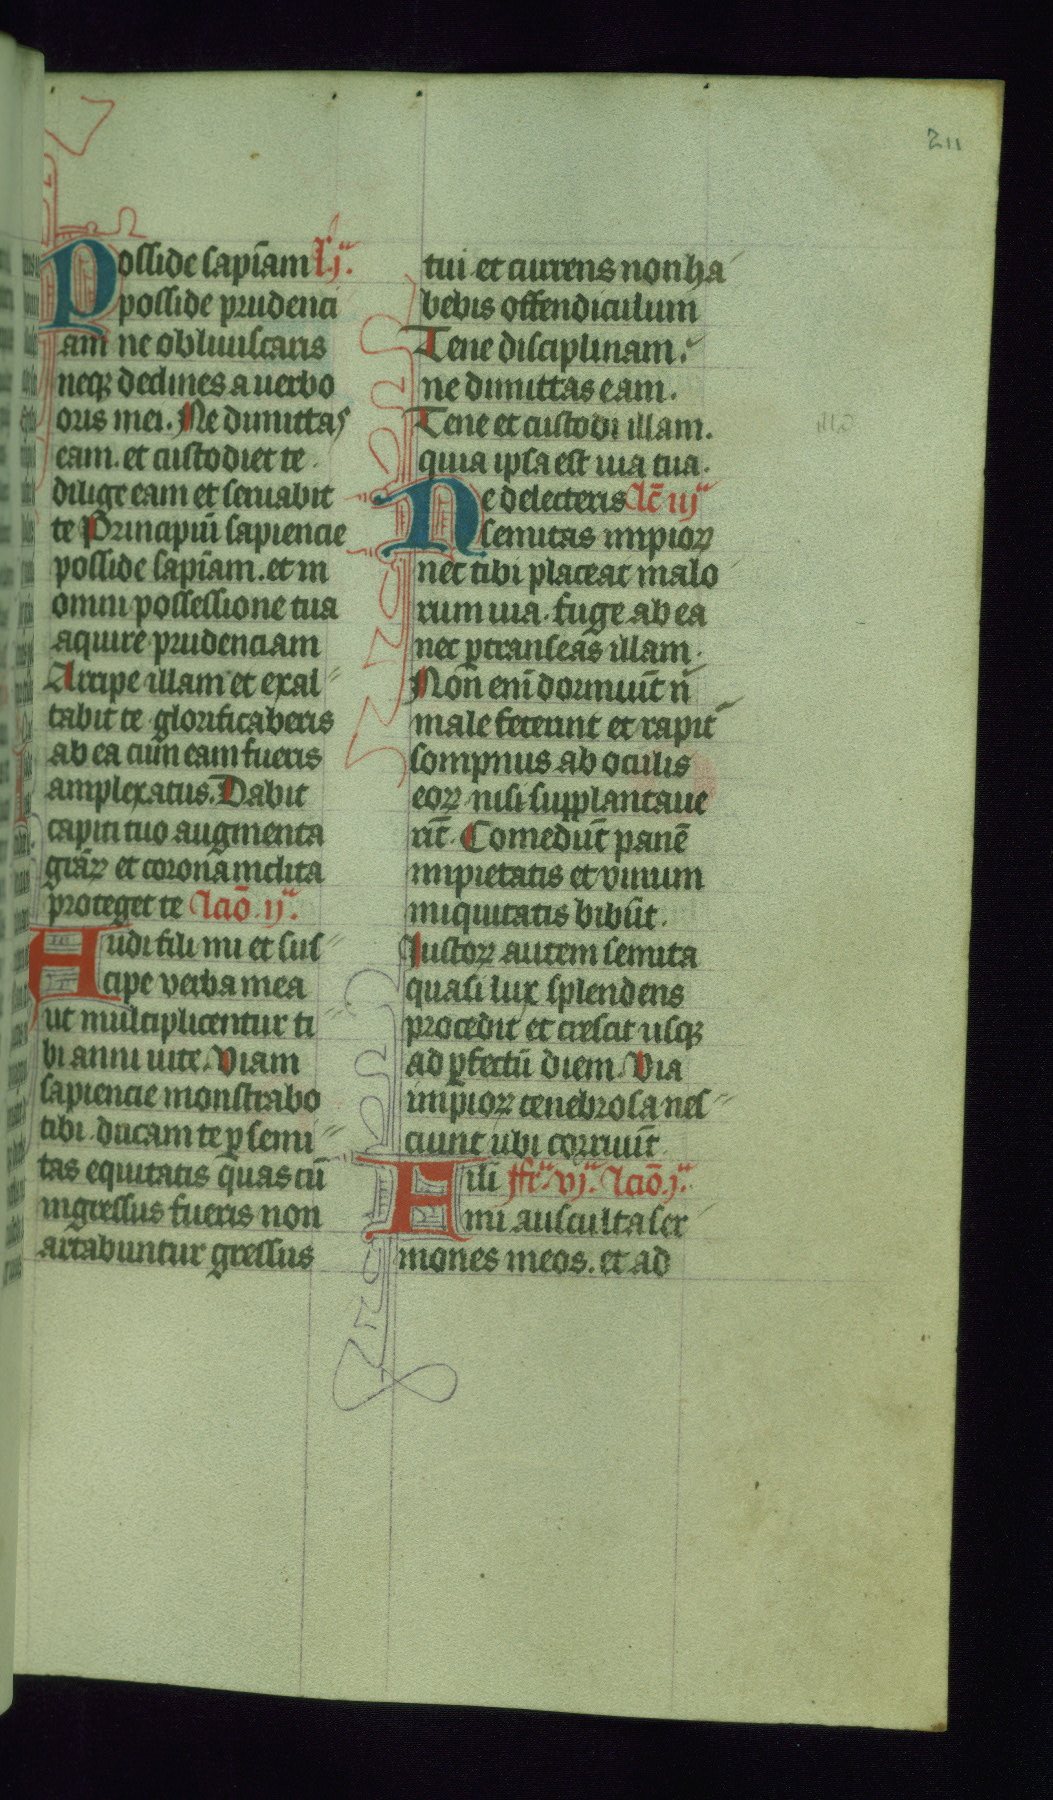 211
Posside sapīam l. j.
posside prudenci
am ne obliuiscaris
neqꝫ declines a uerbo
oris mei. Ne dimittas
eam. et custodiet te.
dilige eam et seruabit
te Principiū sapiencie
posside sapīam. et in
omni possessione tua
aquire prudenciam
Arripe illam et exal
tabit te glorificaberis
ab ea cum eam fueris
amplexatus. Dabit
capiti tuo augmenta
grāꝝ et corona inclita
proteget te Lcīo. ij.
Audi fili mi et sus
cipe verba mea
ut multiplicentur ti
bi anni uite. Viam
sapiencie monstrabo
tibi. ducam te ꝑ semi
tas equitatis quas cū
ingressus fueris non
artabuntur gressus
tui et currens non ha
bebis offendiculum
Tene disciplinam.
ne dimittas eam.
Tene et custodi illam.
quia ipsa est uia tua.
Ne delecteris Lc̄ iij
semitas impioꝝ
nec tibi placeat malo
rum uia. fuge ab ea
nec ꝑtranseas illam.
Non enī dormiūt nͥ
male fecerint et rapit᷑
sompnus ab oculis
eoꝝ nisi supplantaue
rīt. Comedūt panē
impietatis et vinum
iniquitatis bibūt.
Iustoꝝ autem semita
quasi lux splendens
procedit et crescit usqꝫ
ad ꝑfectū diem. Via
impioꝝ tenebrosa nes
ciunt ubi corruūt
Fili ffr. vj. Lcīo. j.
mi ausculta ser
mones meos. et ad